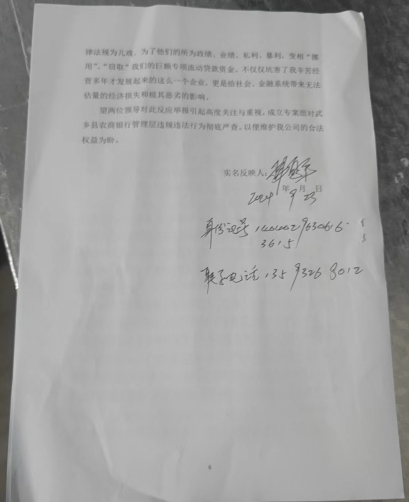 律法视为儿戏，为了他们的所为政绩、业绩、私利、暴利，变相“挪
用”、“窃取”我们的巨额专项流动贷款资金，不仅仅坑害了我辛苦经
营多年才发展起来的这么一个企业，更是给社会、金融系统带来无法
估量的经济损失和极其恶劣的影响。
望两位领导对此反应举报引起高度关注与重视，成立专案组对武
乡县农商银行管理层违规违法行为彻底严查，以便维护我公司的合法
权益为盼。
实名反映人：
年 月 日
2024 9 23
身份证号
3615
联系电话：135 9326 9012